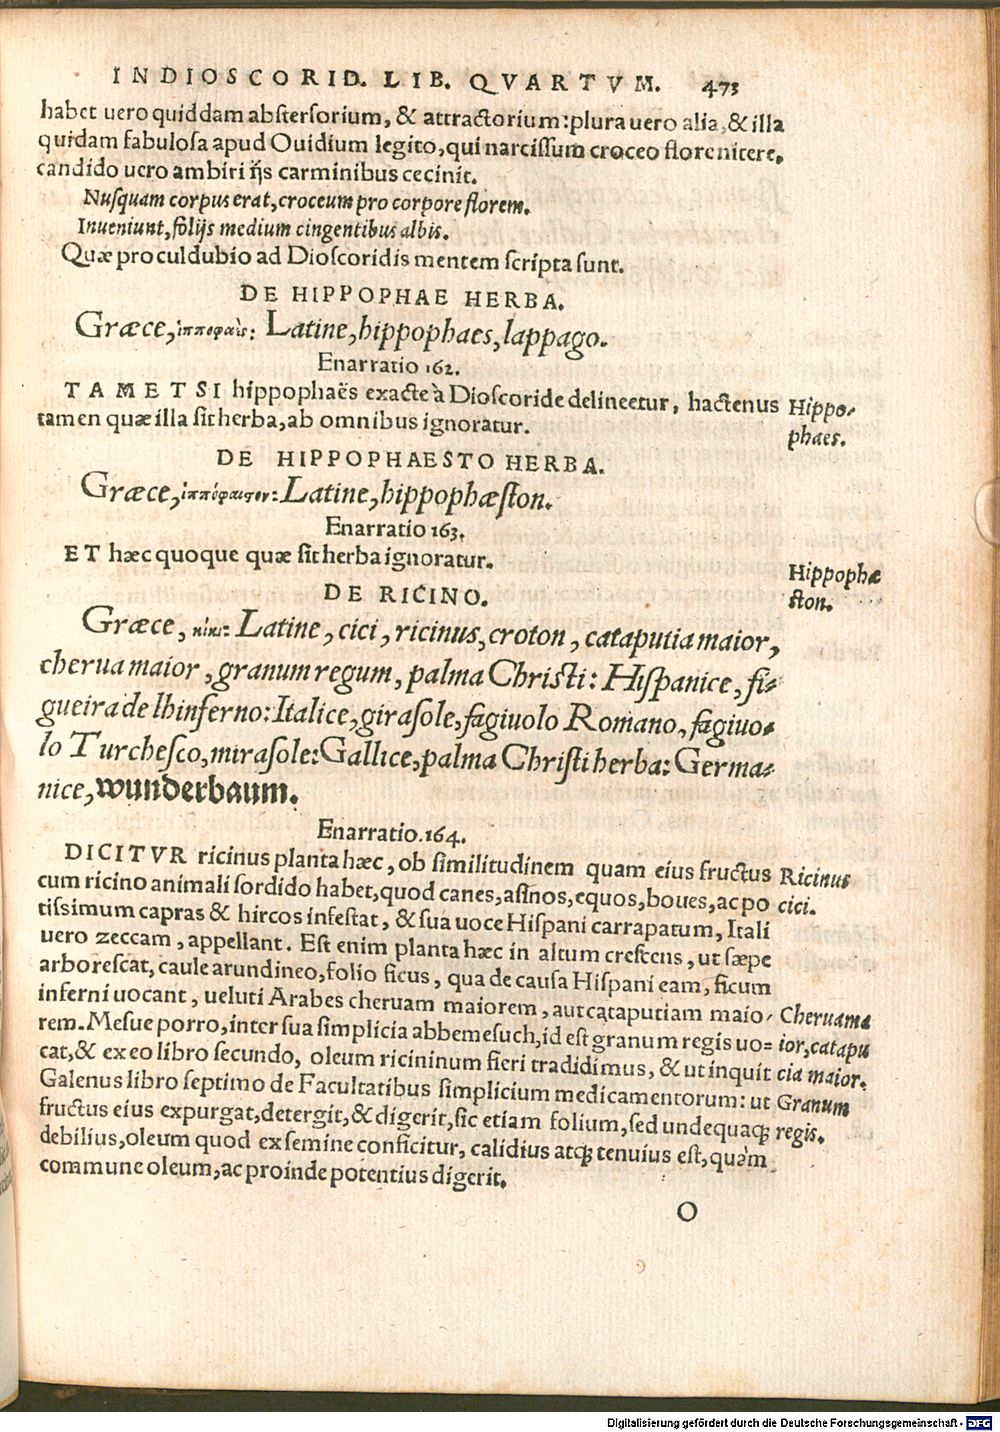 IN DIOSCORID. LIB. QVARTVM. 473
habet uero quiddam abstersorium, & attractorium: plura uero alia, & illa
quidam fabulosa apud Ouidium legito, qui narcissum croceo flore nitere,
candido uero ambiri ijs carminibus cecinit.
Nusquam corpus erat, croceum pro corpore florem.
Inueniunt, folijs medium cingentibus albis.
Quæ proculdubio ad Dioscoridis mentem scripta sunt.
DE HIPPOPHAE HERBA.
Græce, ἱπποφαὲς: Latine, hippophaes, lappago.
Enarratio 162.
TAMETSI hippophaës exacte à Dioscoride delineetur, hactenus
Hippo-
tamen quæ illa sit herba, ab omnibus ignoratur.
phaes.
DE HIPPOPHAESTO HERBA.
Græce, ἱππόφαιστον: Latine, hippophæston.
Enarratio 163.
ET hæc quoque quæ sit herba ignoratur.
Hippophæ
ston.
DE RICINO.
Græce, κίκι: Latine, cici, ricinus, croton, cataputia maior,
cherua maior, granum regum, palma Christi: Hispanice, fi-
gueira de lhinferno: Italice, girasole, fagiuolo Romano, fagiuo-
lo Turchesco, mirasole: Gallice, palma Christi herba: Germa-
nice, wunderbaum.
Enarratio. 164.
DICITVR ricinus planta hæc, ob similitudinem quam eius fructus
Ricinus
cum ricino animali sordido habet, quod canes, asinos, equos, boues, ac po
cici.
tissimum capras & hircos infestat, & sua uoce Hispani carrapatum, Itali
uero zeccam, appellant. Est enim planta hæc in altum crescens, ut sæpe
arborescat, caule arundineo, folio ficus, qua de causa Hispani eam, ficum
inferni uocant, ueluti Arabes cheruam maiorem, aut cataputiam maio-
Cherua ma
rem. Mesue porro, inter sua simplicia abbemesuch, id est granum regis uo=
ior, catapu
cat, & ex eo libro secundo, oleum ricininum fieri tradidimus, & ut inquit
cia maior.
Galenus libro septimo de Facultatibus simplicium medicamentorum: ut
Granum
fructus eius expurgat, detergit, & digerit, sic etiam folium, sed undequaq;
regis.
debilius, oleum quod ex semine conficitur, calidius atq; tenuius est, quàm
commune oleum, ac proinde potentius digerit.
O
Digitalisierung gefördert durch die Deutsche Forschungsgemeinschaft - DFG